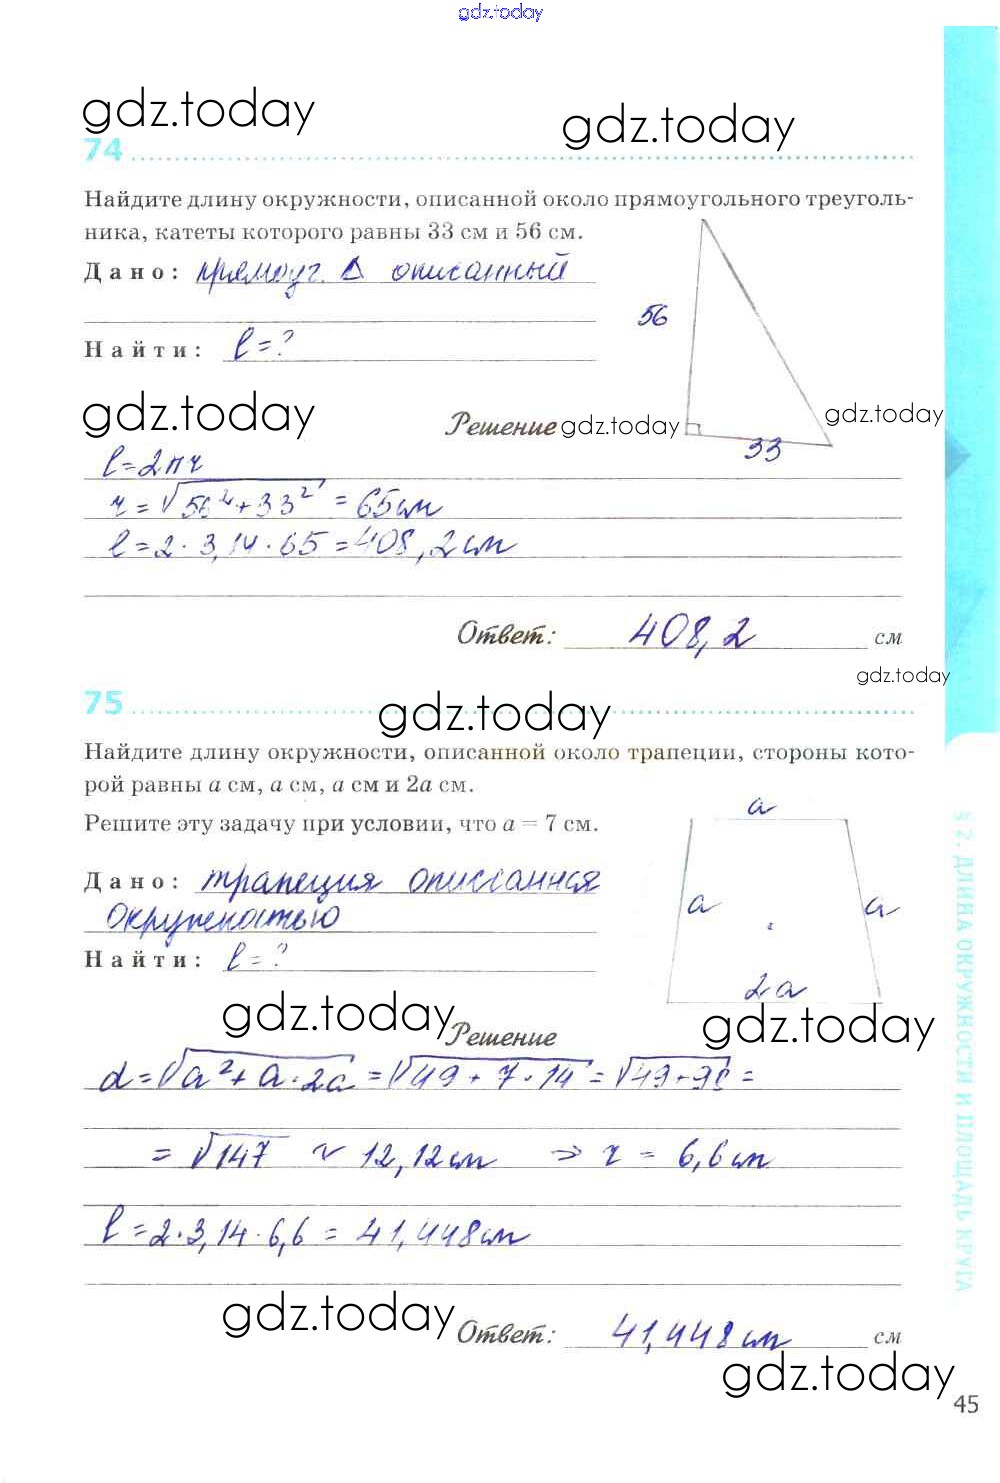 gdz.today
gdz.today
gdz.today
74
Найдите длину окружности, описанной около прямоугольного треуголь-
ника, катеты которого равны 33 см и 56 см.
Дано: прямоуг. Δ описанный
56
Найти: l = ?
gdz.today
Решение gdz.today
gdz.today
33
l = 2πr
r = √56² + 33² = 65 см
l = 2 · 3,14 · 65 = 408,2 см
Ответ: 408,2 см
gdz.today
75
gdz.today
Найдите длину окружности, описанной около трапеции, стороны кото-
рой равны a см, a см, a см и 2a см.
Решите эту задачу при условии, что a = 7 см.
a
Дано: трапеция описанная
окружностью
a
a
Найти: l = ?
2a
gdz.today
gdz.today
Решение
d = √a² + a · 2a = √49 + 7 · 14 = √49 + 98 =
= √147 ≈ 12,12 см ⇒ r = 6,6 см
l = 2 · 3,14 · 6,6 = 41,448 см
gdz.today
Ответ: 41,448 см см
gdz.today
45
§ 2. ДЛИНА ОКРУЖНОСТИ И ПЛОЩАДЬ КРУГА